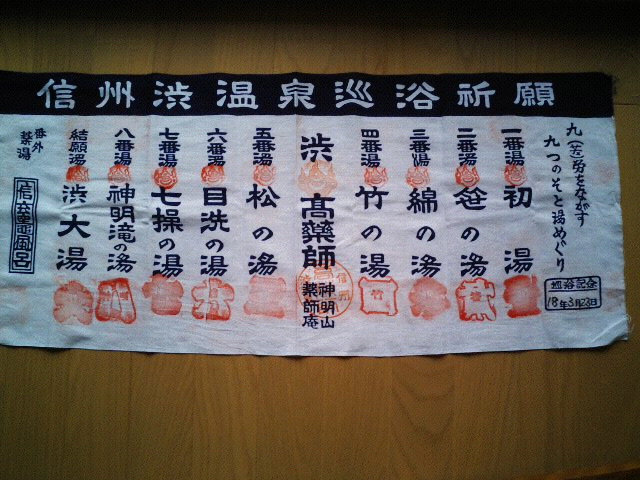 信州渋温泉巡浴祈願
九(苦)労をながす
九つのそと湯めぐり
巡浴記念
18年3月23日
一番湯 初湯
二番湯 笹の湯
三番湯 綿の湯
四番湯 竹の湯
渋 高薬師 神明山
薬師庵
五番湯 松の湯
六番湯 目洗の湯
七番湯 七操の湯
八番湯 神明滝の湯
結願湯 渋大湯
番外
薬湯
信玄竈風呂